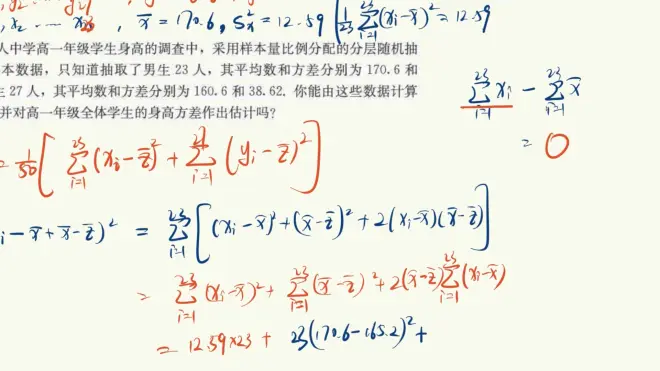 x̄ = 170.6, Sx² = 12.59 | 1/23 ∑(i=1→23)(xi-x̄)² = 12.59
人中学高一年级学生身高的调查中，采用样本量比例分配的分层随机抽
本数据，只知道抽取了男生 23 人，其平均数和方差分别为 170.6 和
生 27 人，其平均数和方差分别为 160.6 和 38.62. 你能由这些数据计算
并对高一年级全体学生的身高方差作出估计吗?
∑(i=1→23) xi - ∑(i=1→23) x̄
= 0
= 1/50 [∑(i=1→23)(xi-z̄)² + ∑(i=1→27)(yi-z̄)²]
i-x̄+x̄-z̄)² = ∑(i=1→23)[(xi-x̄)²+(x̄-z̄)²+2(xi-x̄)(x̄-z̄)]
= ∑(i=1→23)(xi-x̄)²+ ∑(i=1→23)(x̄-z̄)²+2(x̄-z̄)∑(i=1→23)(xi-x̄)
= 12.59×23 + 23(170.6-165.2)² +